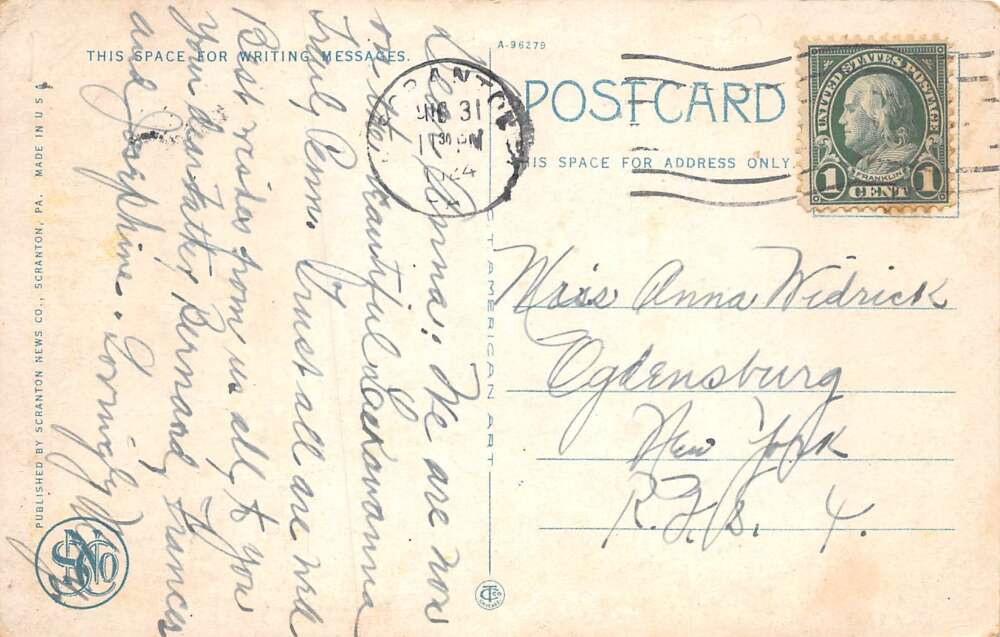 THIS SPACE FOR WRITING MESSAGES.
A-96279
POSTCARD
THIS SPACE FOR ADDRESS ONLY.
SCRANTON
AUG 31
11 30 PM
1924
UNITED STATES POSTAGE
FRANKLIN
1 CENT 1
Dear Anna: We are now
on the beautiful Lackawanna
Trail, Penna. Trust all are well
Best wishes from us all, to you
Your dear Father, Bernard, Frances
and Josephine. Lovingly
Miss Anna Widrick
Ogdensburg
New York
R.F.D. 4.
C.T. AMERICAN ART
PUBLISHED BY SCRANTON NEWS CO., SCRANTON, PA. MADE IN U S A
SNCo
CT Co
CHICAGO